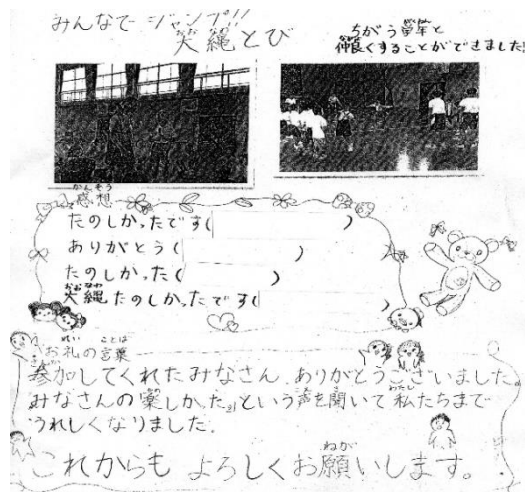 みんなで ジャンプ!!
大縄とび
ちがう学年と
仲良くすることができました!
かんそう
感想
たのしかったです(　　)
ありがとう(　　)
たのしかった(　　)
おおなわ
大縄たのしかったです(
れい ことば
お礼の言葉
参加してくれたみなさん、ありがとうございました。
わたし
みなさんの「楽しかった。」という声を聞いて私たちまで
うれしくなりました。
ねが
これからも よろしくお願いします。